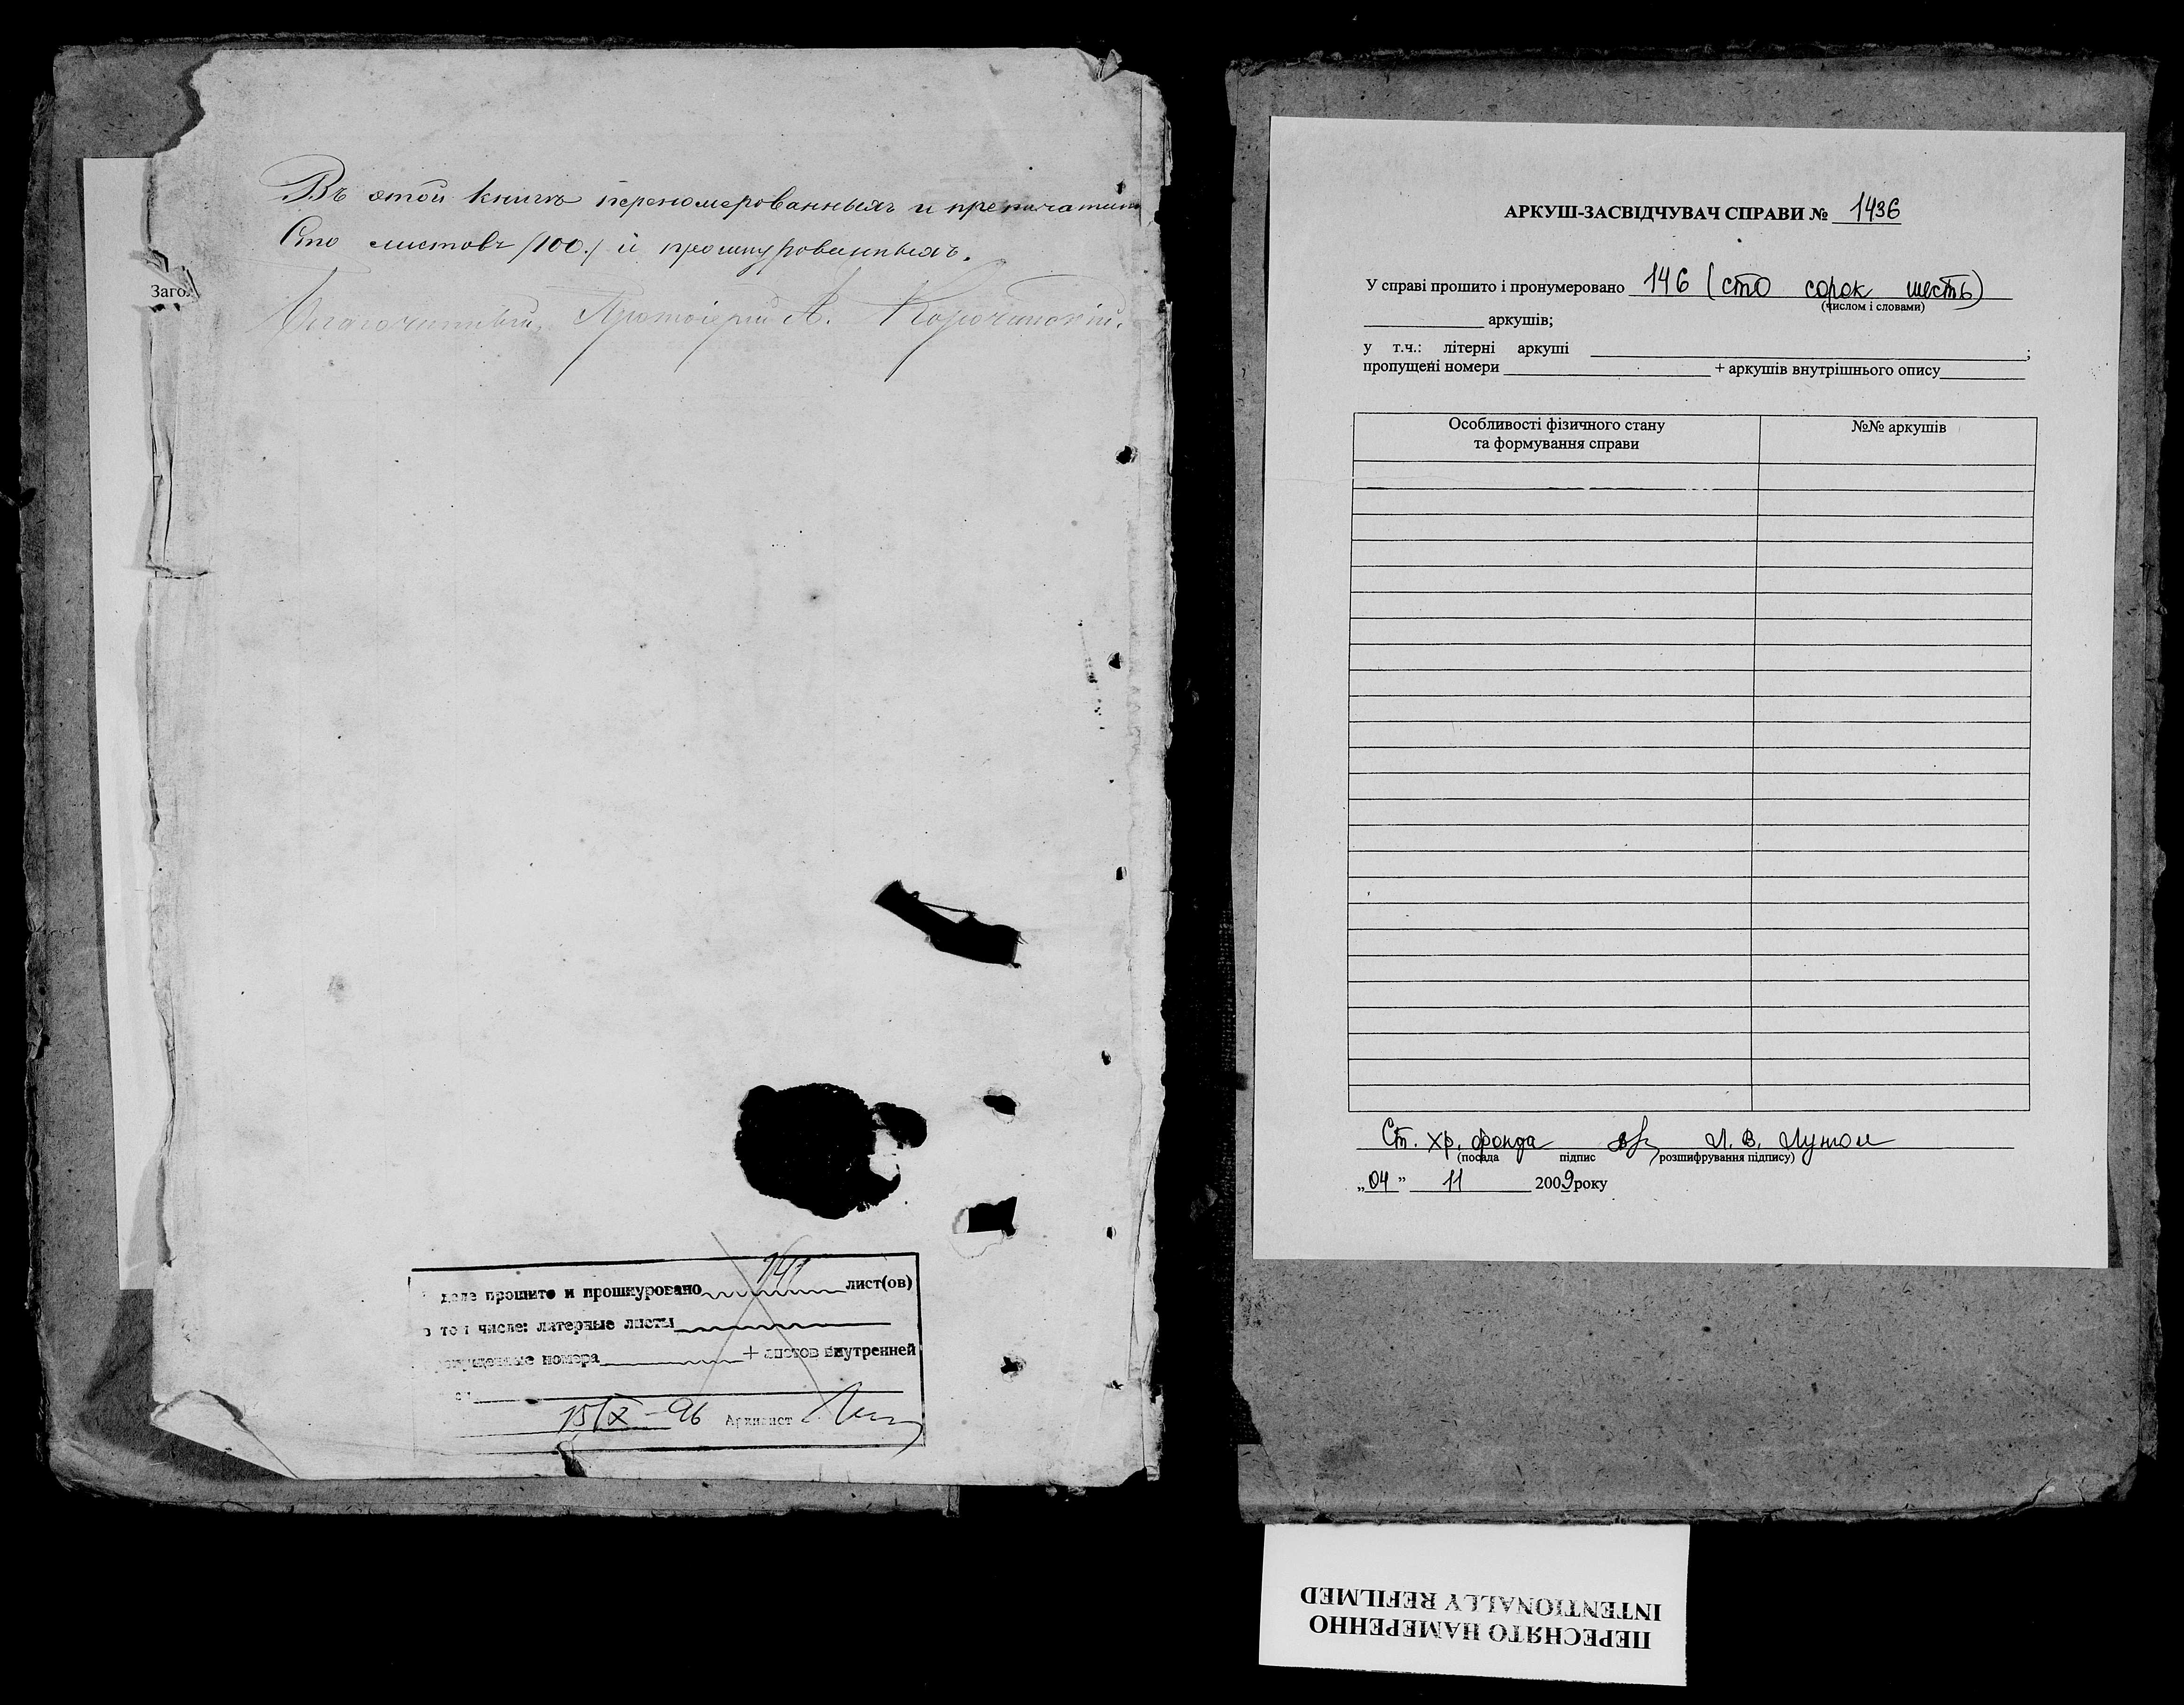 Въ этой книгѣ перономерованныхъ и препичатан
Сто листовъ /100./ и прошнурованныхъ.
Благочинный, Протоіерей А.
Загол
деле прошито и прошнуровано 141 лист(ов)
в том числе: литерные листы
пропущенные номера + листов внутренней
15/X-96 Архивист
АРКУШ-ЗАСВІДЧУВАЧ СПРАВИ № 1436
У справі прошито і пронумеровано 146 (сто сорок шесть)
(числом і словами)
аркушів;
у т.ч.: літерні аркуші ;
пропущені номери + аркушів внутрішнього опису
Особливості фізичного стану
та формування справи
№№ аркушів
Ст. хр. фонда Л. В.
(посада підпис розшифрування підпису)
„04” 11 2009року
ПЕРЕСНЯТО НАМЕРЕННО
INTENTIONALLY REFILMED